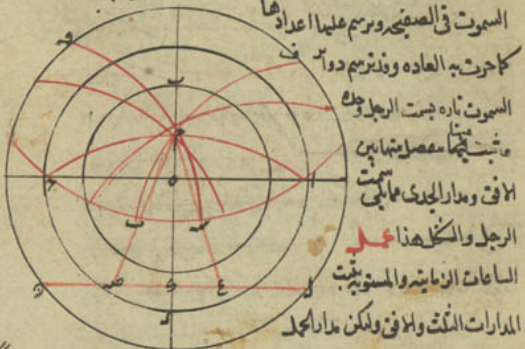 السموت فى الصفيحه ويرسم عليها اعدادها
كما جرت به العاده وقد ترسم دوائر
السموت تاره بسمت الرجل وحده
الافق ومدار الجدى مما يلى سمت
الرجل والشكل هذا عمل
الساعات الزمانيه والمستويه نثبت
المدارات الثلث والافق وليكن مدار الحمل